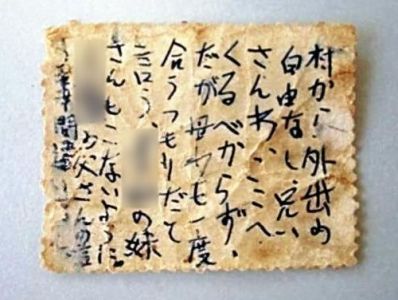 村から外出の
自由なし、兄い
さんわ、ここへ
くるべからず、
だが母わも一度
合うつもりだて
言う、の妹
さんもこないように。
お父さんの
間違